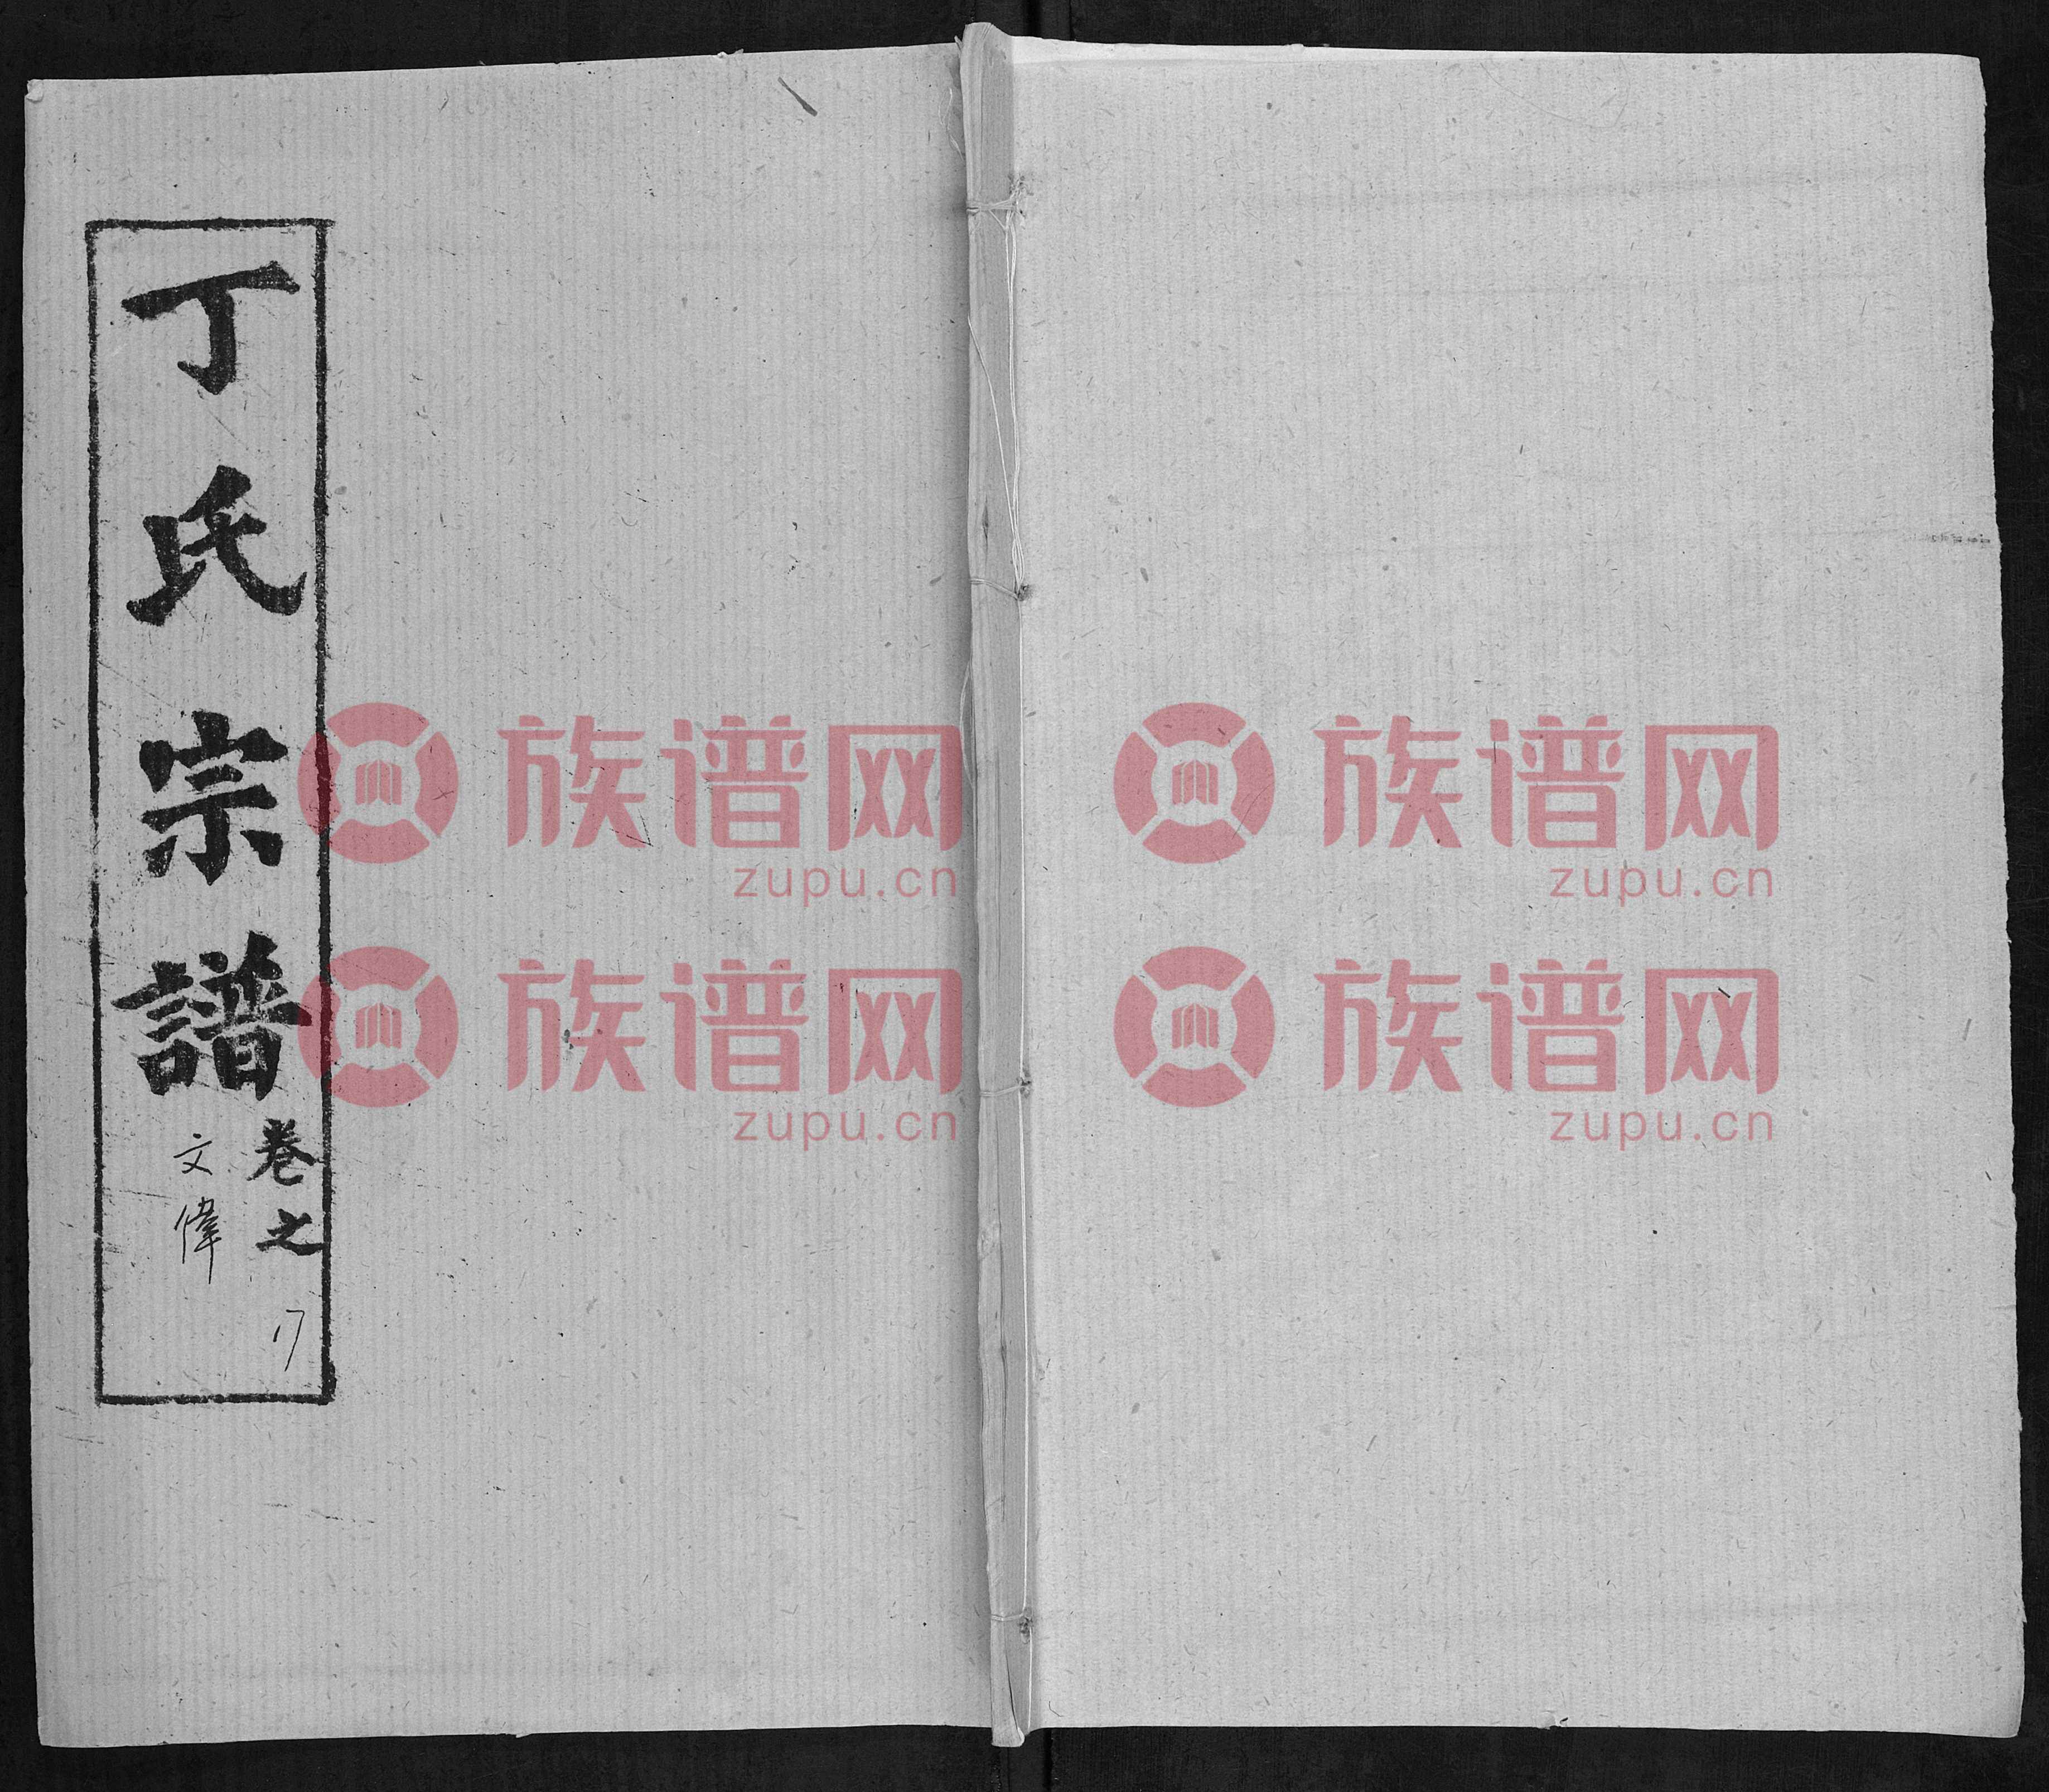 丁氏宗譜
卷之17
文偉
族谱网
zupu.cn
族谱网
zupu.cn
族谱网
zupu.cn
族谱网
zupu.cn